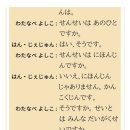 んは。
わたなべ よしこ: せんせいは あのひと
ですか。
はん・じぇじゅん: はい、そうです。
わたなべ よしこ: せんせいは にほんじ
んですか。
はん・じぇじゅん: いいえ、にほんじん
じゃありません。かん
こくじんです。
わたなべ よしこ: そうですか。せいと
は みんな だいがくせ
いですか。